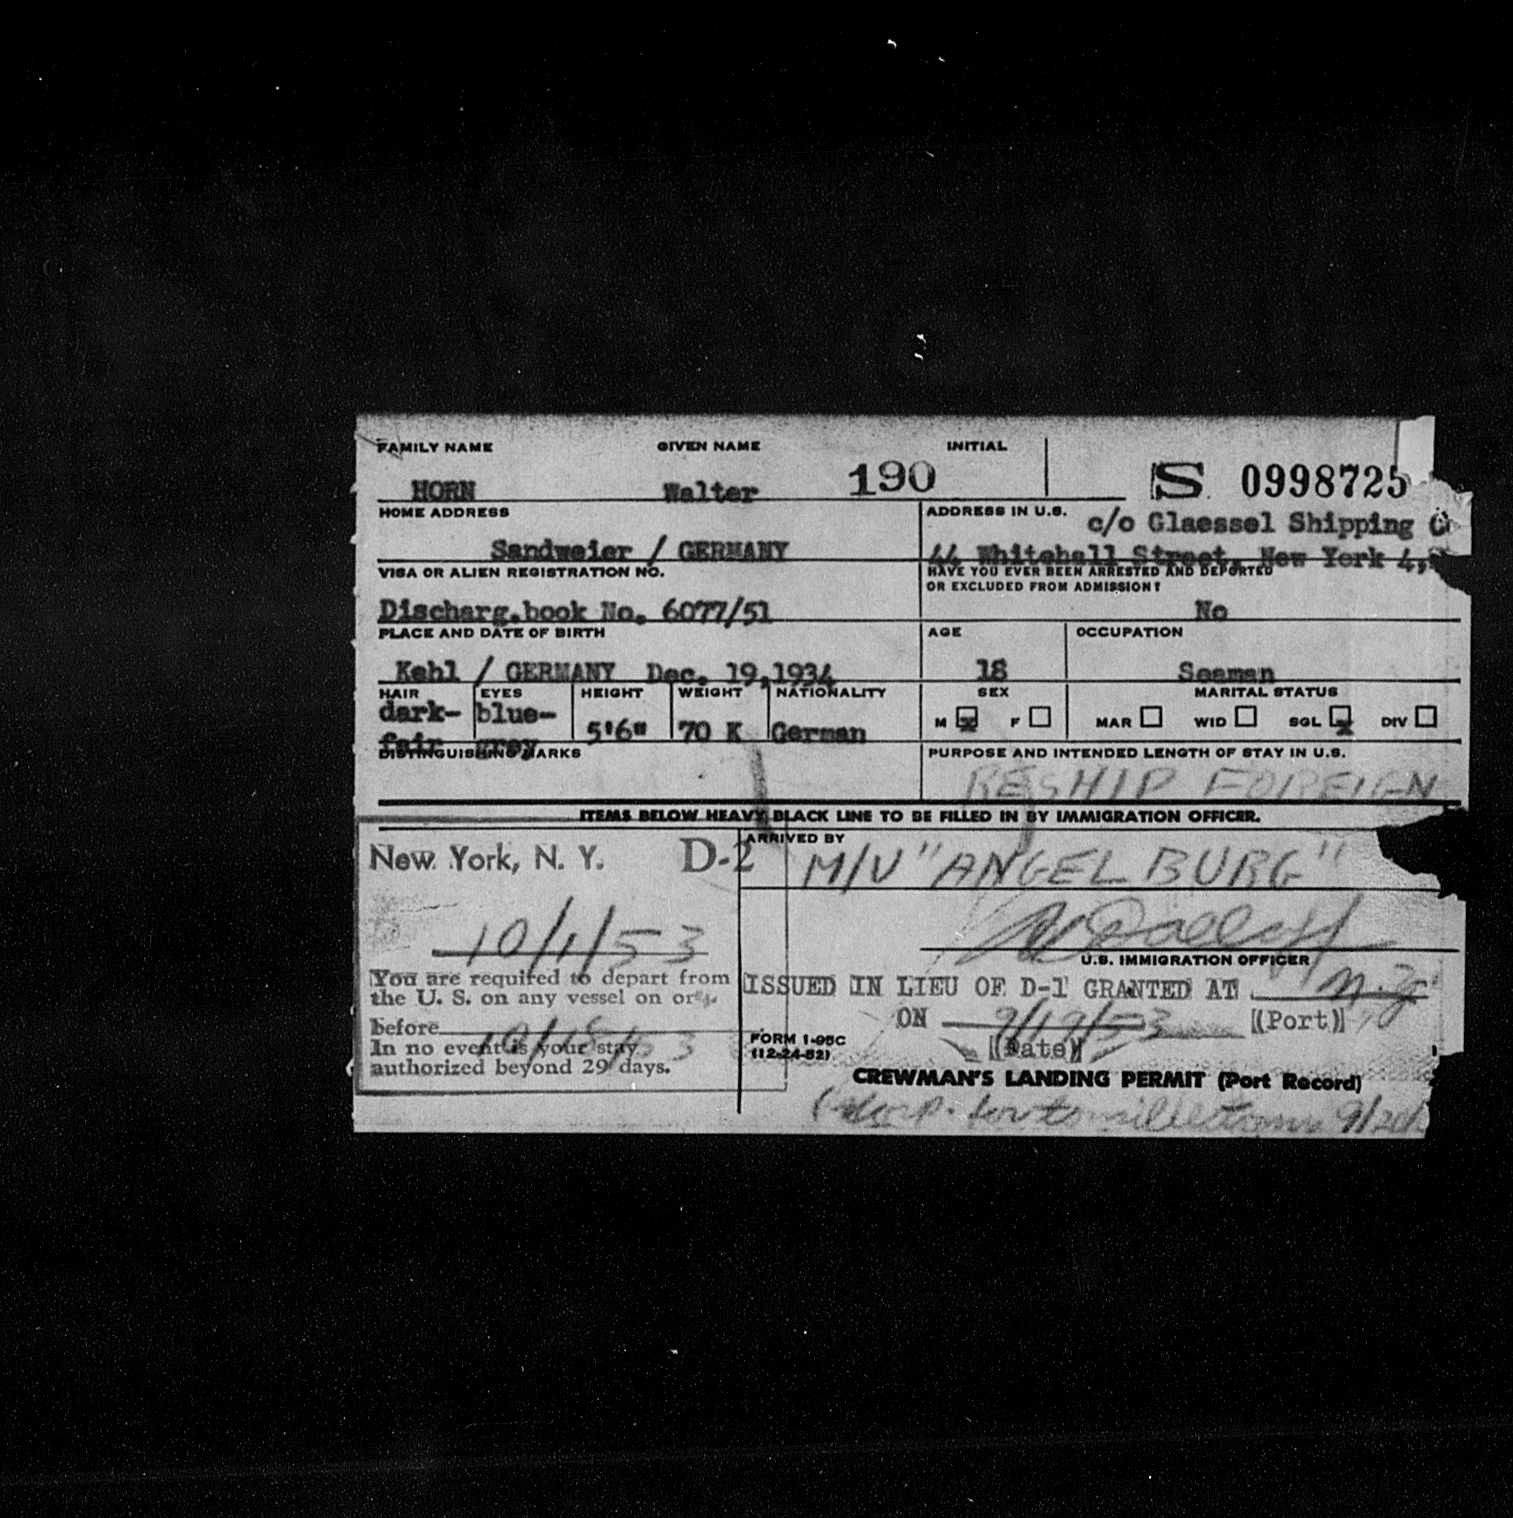 FAMILY NAME GIVEN NAME INITIAL
HORN Walter 190 S 0998725
HOME ADDRESS ADDRESS IN U.S. c/o Glaessel Shipping
Sandweier / GERMANY 44 Whitehall Street, New York 4,
VISA OR ALIEN REGISTRATION NO. HAVE YOU EVER BEEN ARRESTED AND DEPORTED
OR EXCLUDED FROM ADMISSION?
Discharg.book No. 6077/51 No
PLACE AND DATE OF BIRTH AGE OCCUPATION
Kehl / GERMANY Dec. 19,1934 18 Seaman
HAIR EYES HEIGHT WEIGHT NATIONALITY SEX MARITAL STATUS
dark- blue- 5'6" 70 K German M x F MAR WID SGL x DIV
fair grey
DISTINGUISHING MARKS PURPOSE AND INTENDED LENGTH OF STAY IN U.S.
RESHIP FOREIGN
ITEMS BELOW HEAVY BLACK LINE TO BE FILLED IN BY IMMIGRATION OFFICER.
New York, N. Y. D-2 ARRIVED BY
M/V "ANGELBURG"
10/1/53
U.S. IMMIGRATION OFFICER
You are required to depart from
the U. S. on any vessel on or
before 10/18/53
In no event is your stay
authorized beyond 29 days.
ISSUED IN LIEU OF D-1 GRANTED AT N.Y.
ON 9/19/53 (Port)
(Date)
FORM I-95C
(12-24-52)
CREWMAN'S LANDING PERMIT (Port Record)
9/20/